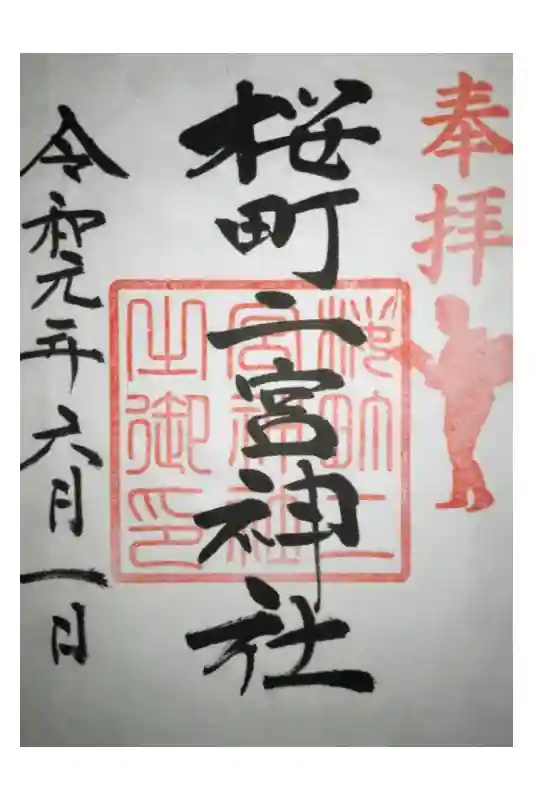 奉拝
桜町二宮神社
桜町二
宮神社
之御印
令和元年六月一日